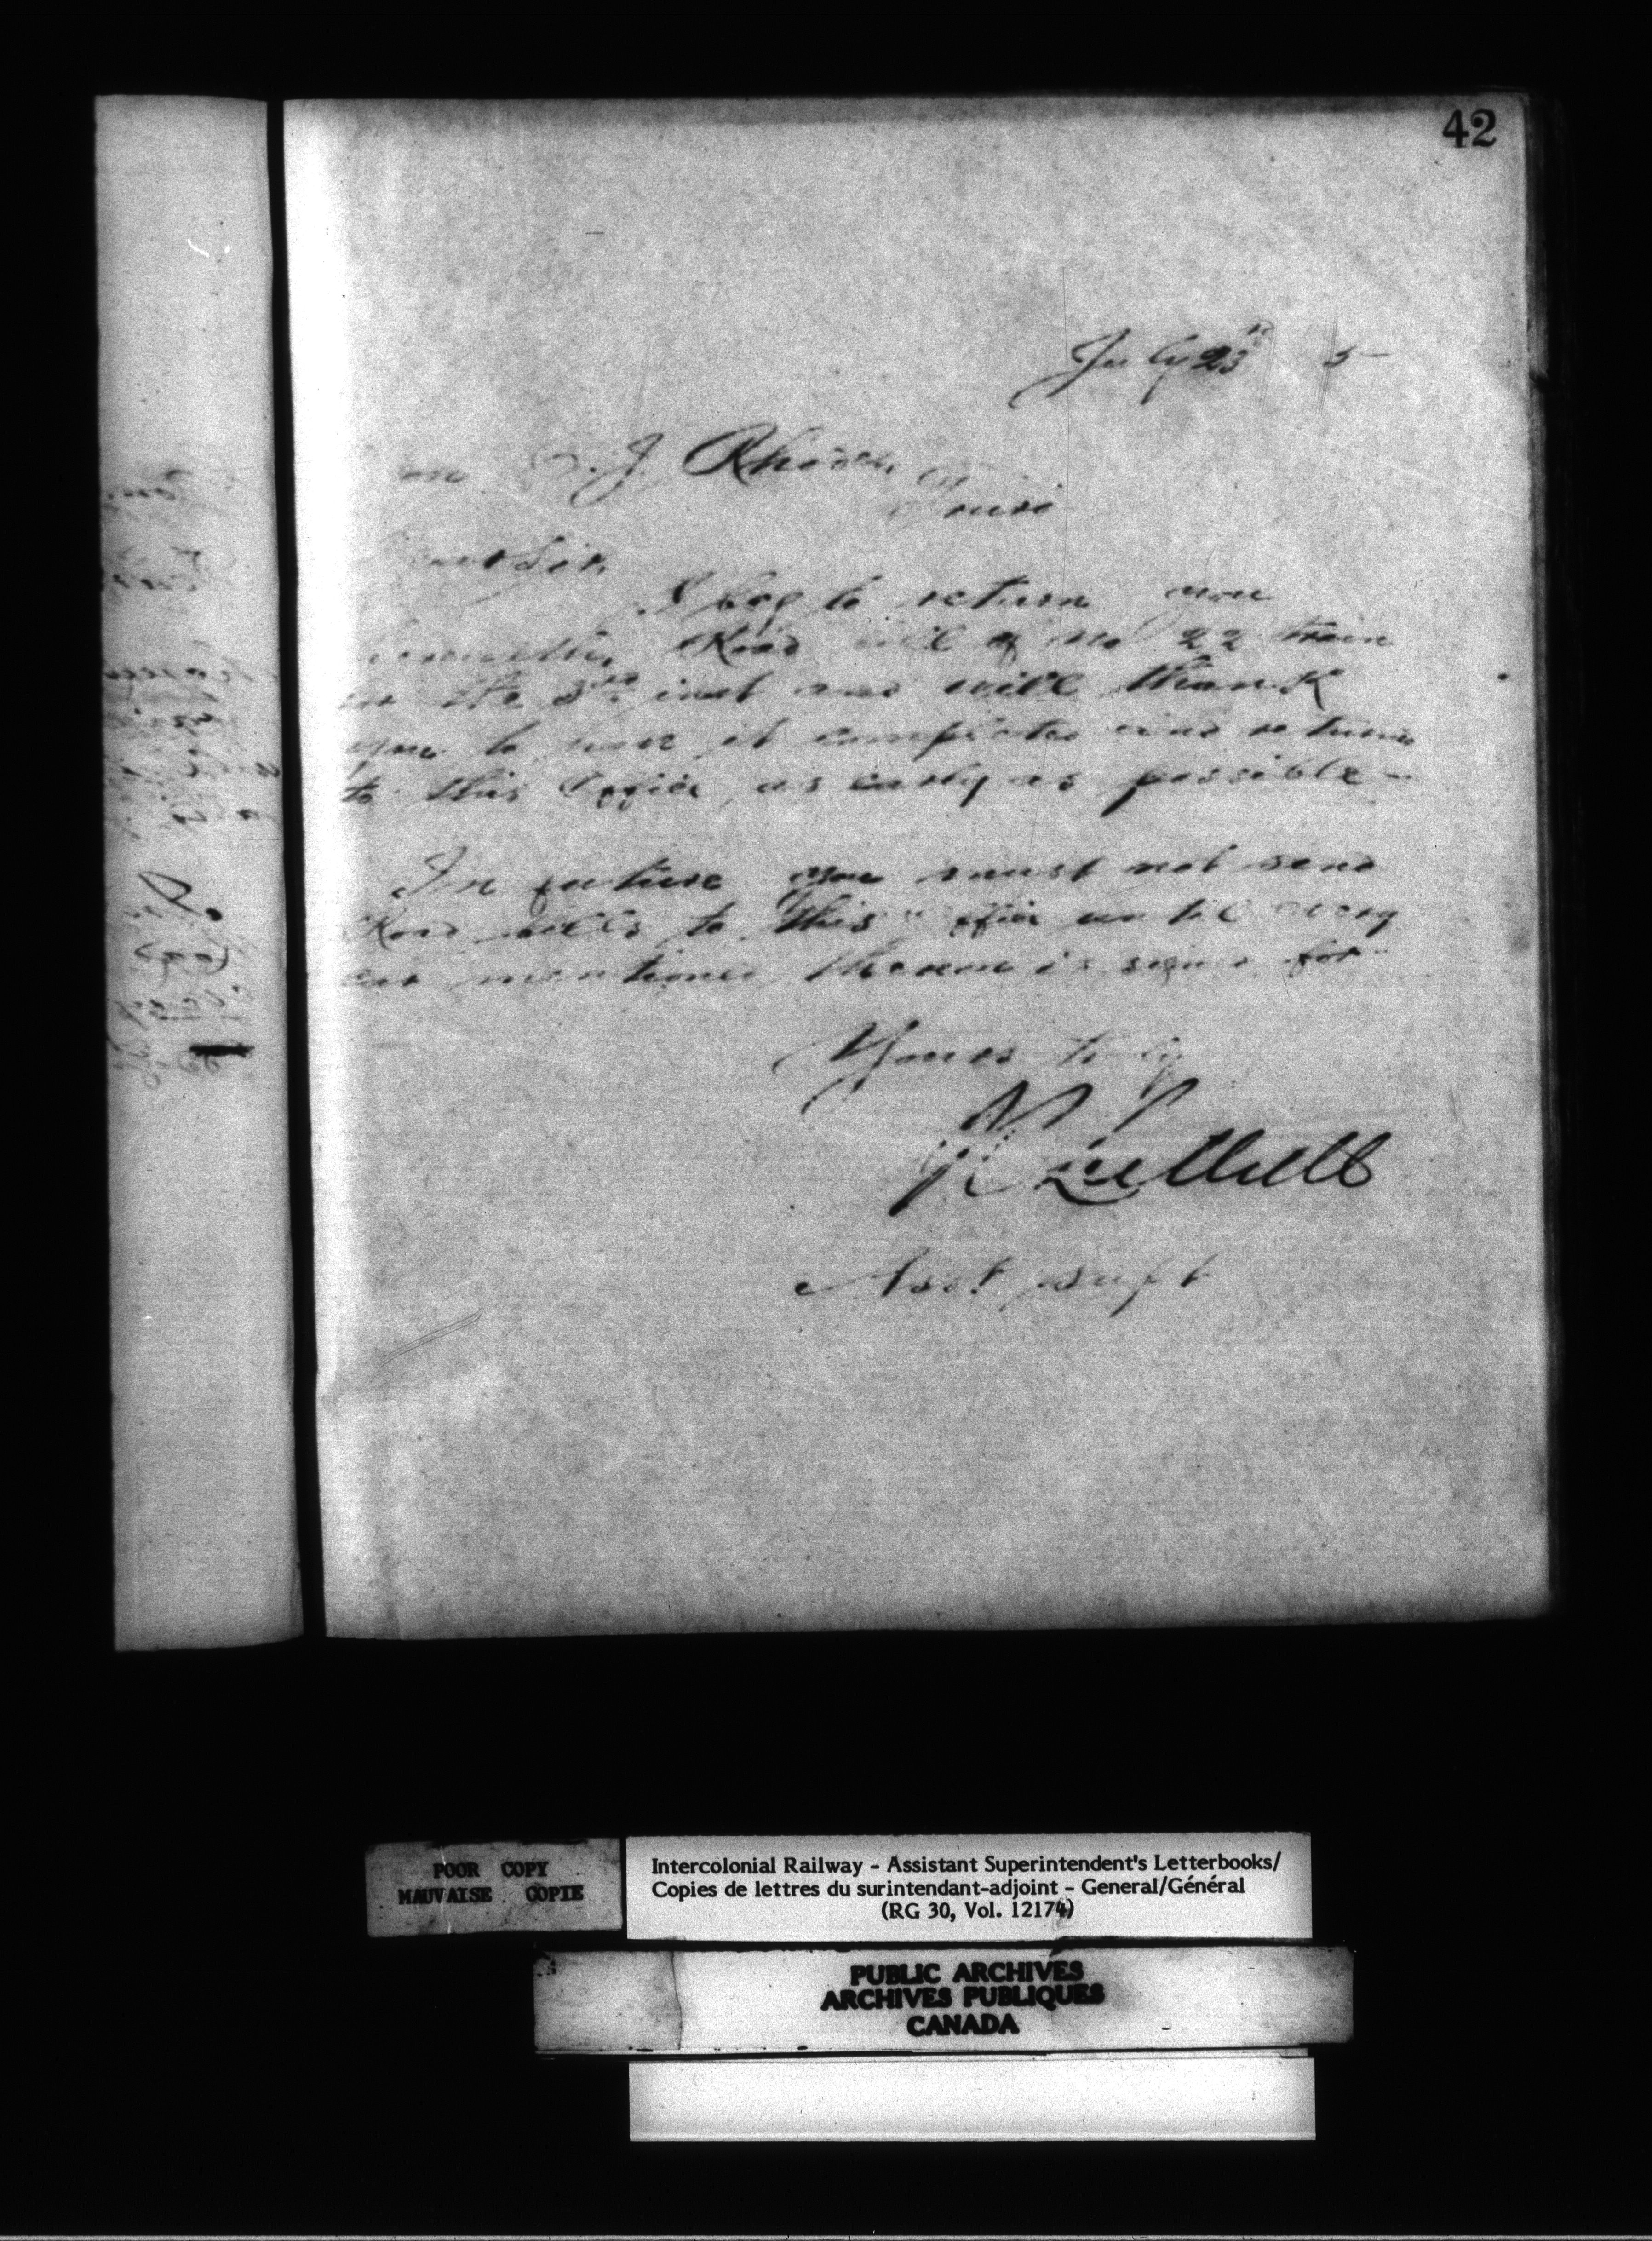 42
July 23rd 5
J. Rhodes
Truro
Dear Sir,
I beg to return you
herewith, Road bill of No 22 train
on the 3rd inst and will thank
you to have it completed and returned
to this Office, as early as possible -
In future you must not send
Road bills to this office until every
car mentioned thereon is signed for -
Yours truly
Asst Supt
POOR COPY
MAUVAISE COPIE
Intercolonial Railway - Assistant Superintendent's Letterbooks/
Copies de lettres du surintendant-adjoint - General/Général
(RG 30, Vol. 12174)
PUBLIC ARCHIVES
ARCHIVES PUBLIQUES
CANADA